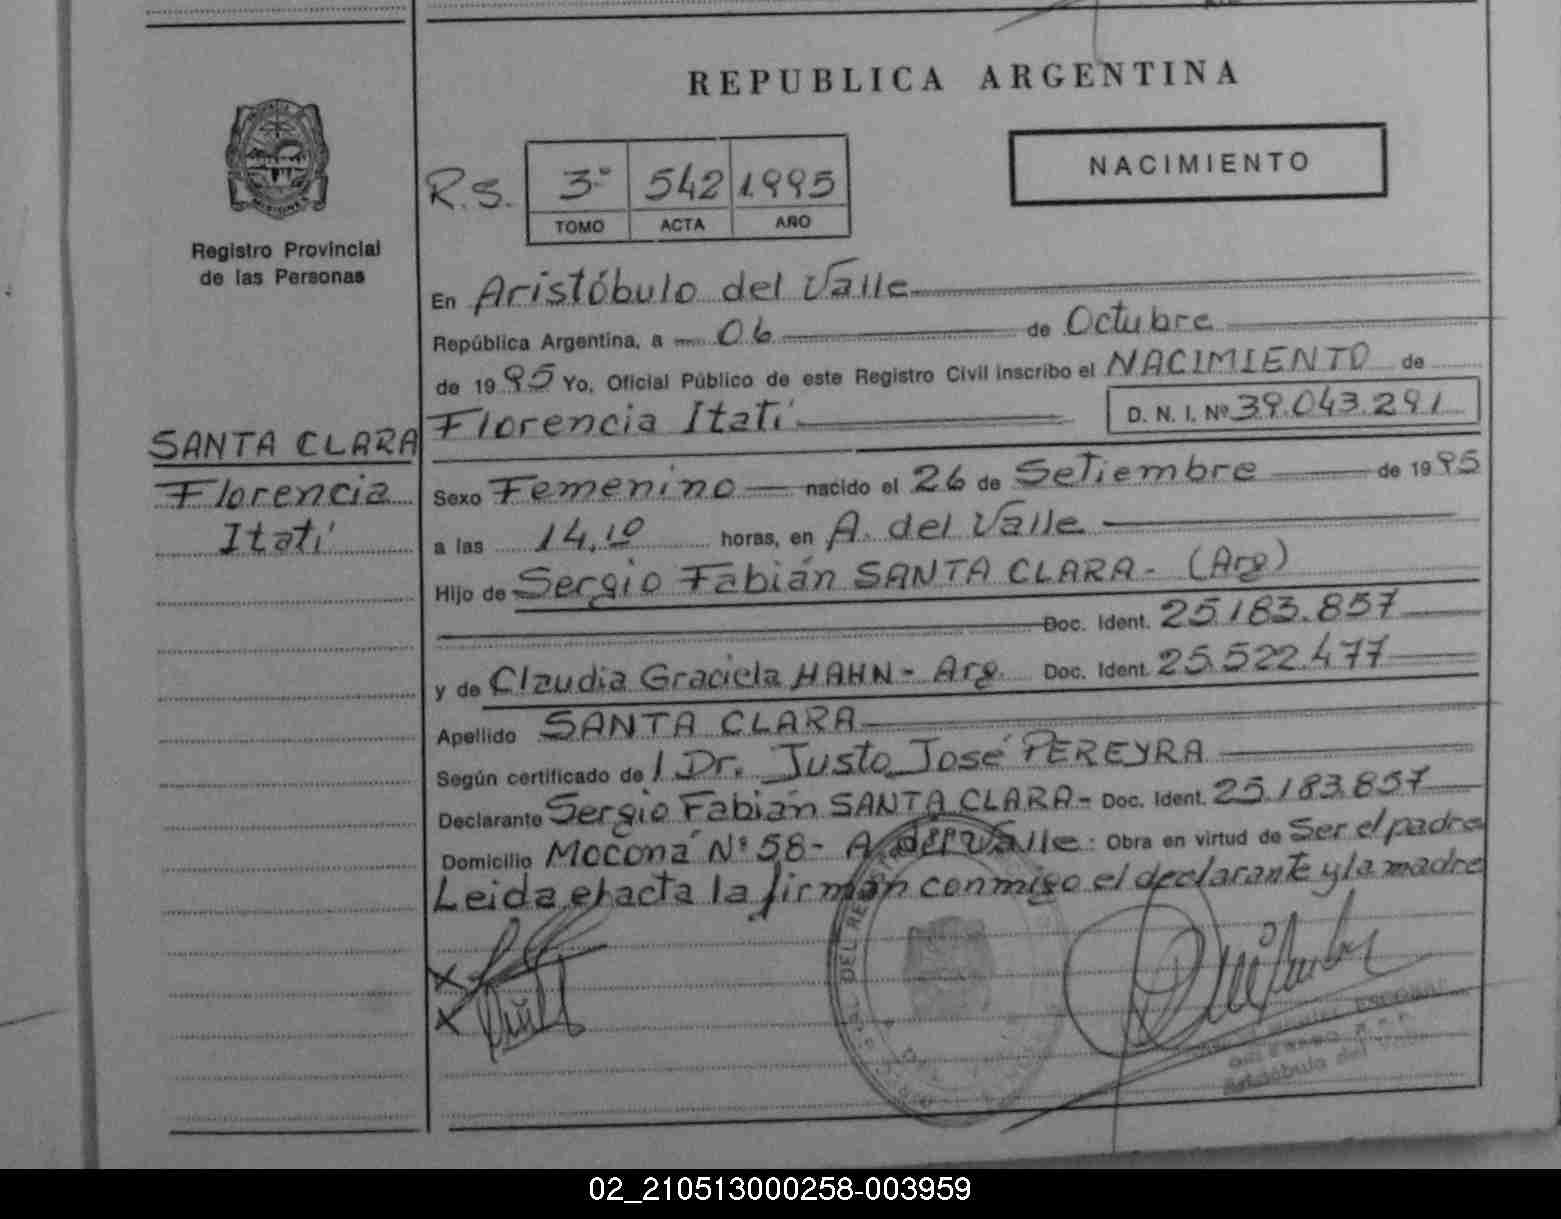 REPUBLICA ARGENTINA
NACIMIENTO
R.S. 3º 542 1995
TOMO ACTA AÑO
MISIONES
Registro Provincial
de las Personas
SANTA CLARA
Florencia
Itatí
En Aristóbulo del Valle
República Argentina, a 06 de Octubre
de 1995 Yo, Oficial Público de este Registro Civil inscribo el NACIMIENTO de
Florencia Itatí D. N. I. Nº 39.043.291
Sexo Femenino nacido el 26 de Setiembre de 1995
a las 14,10 horas, en A. del Valle
Hijo de Sergio Fabián SANTA CLARA - (Arg)
Doc. Ident. 25.183.857
y de Claudia Graciela HAHN - Arg. Doc. Ident. 25.522.477
Apellido SANTA CLARA
Según certificado de / Dr. Justo José PEREYRA
Declarante Sergio Fabián SANTA CLARA - Doc. Ident. 25.183.857
Domicilio Moconá Nº 58 - A. del Valle. Obra en virtud de Ser el padre
Leida el acta la firman conmigo el declarante y la madre
x
x
DEL
ESCOBAR
Aristóbulo del Valle
02_210513000258-003959